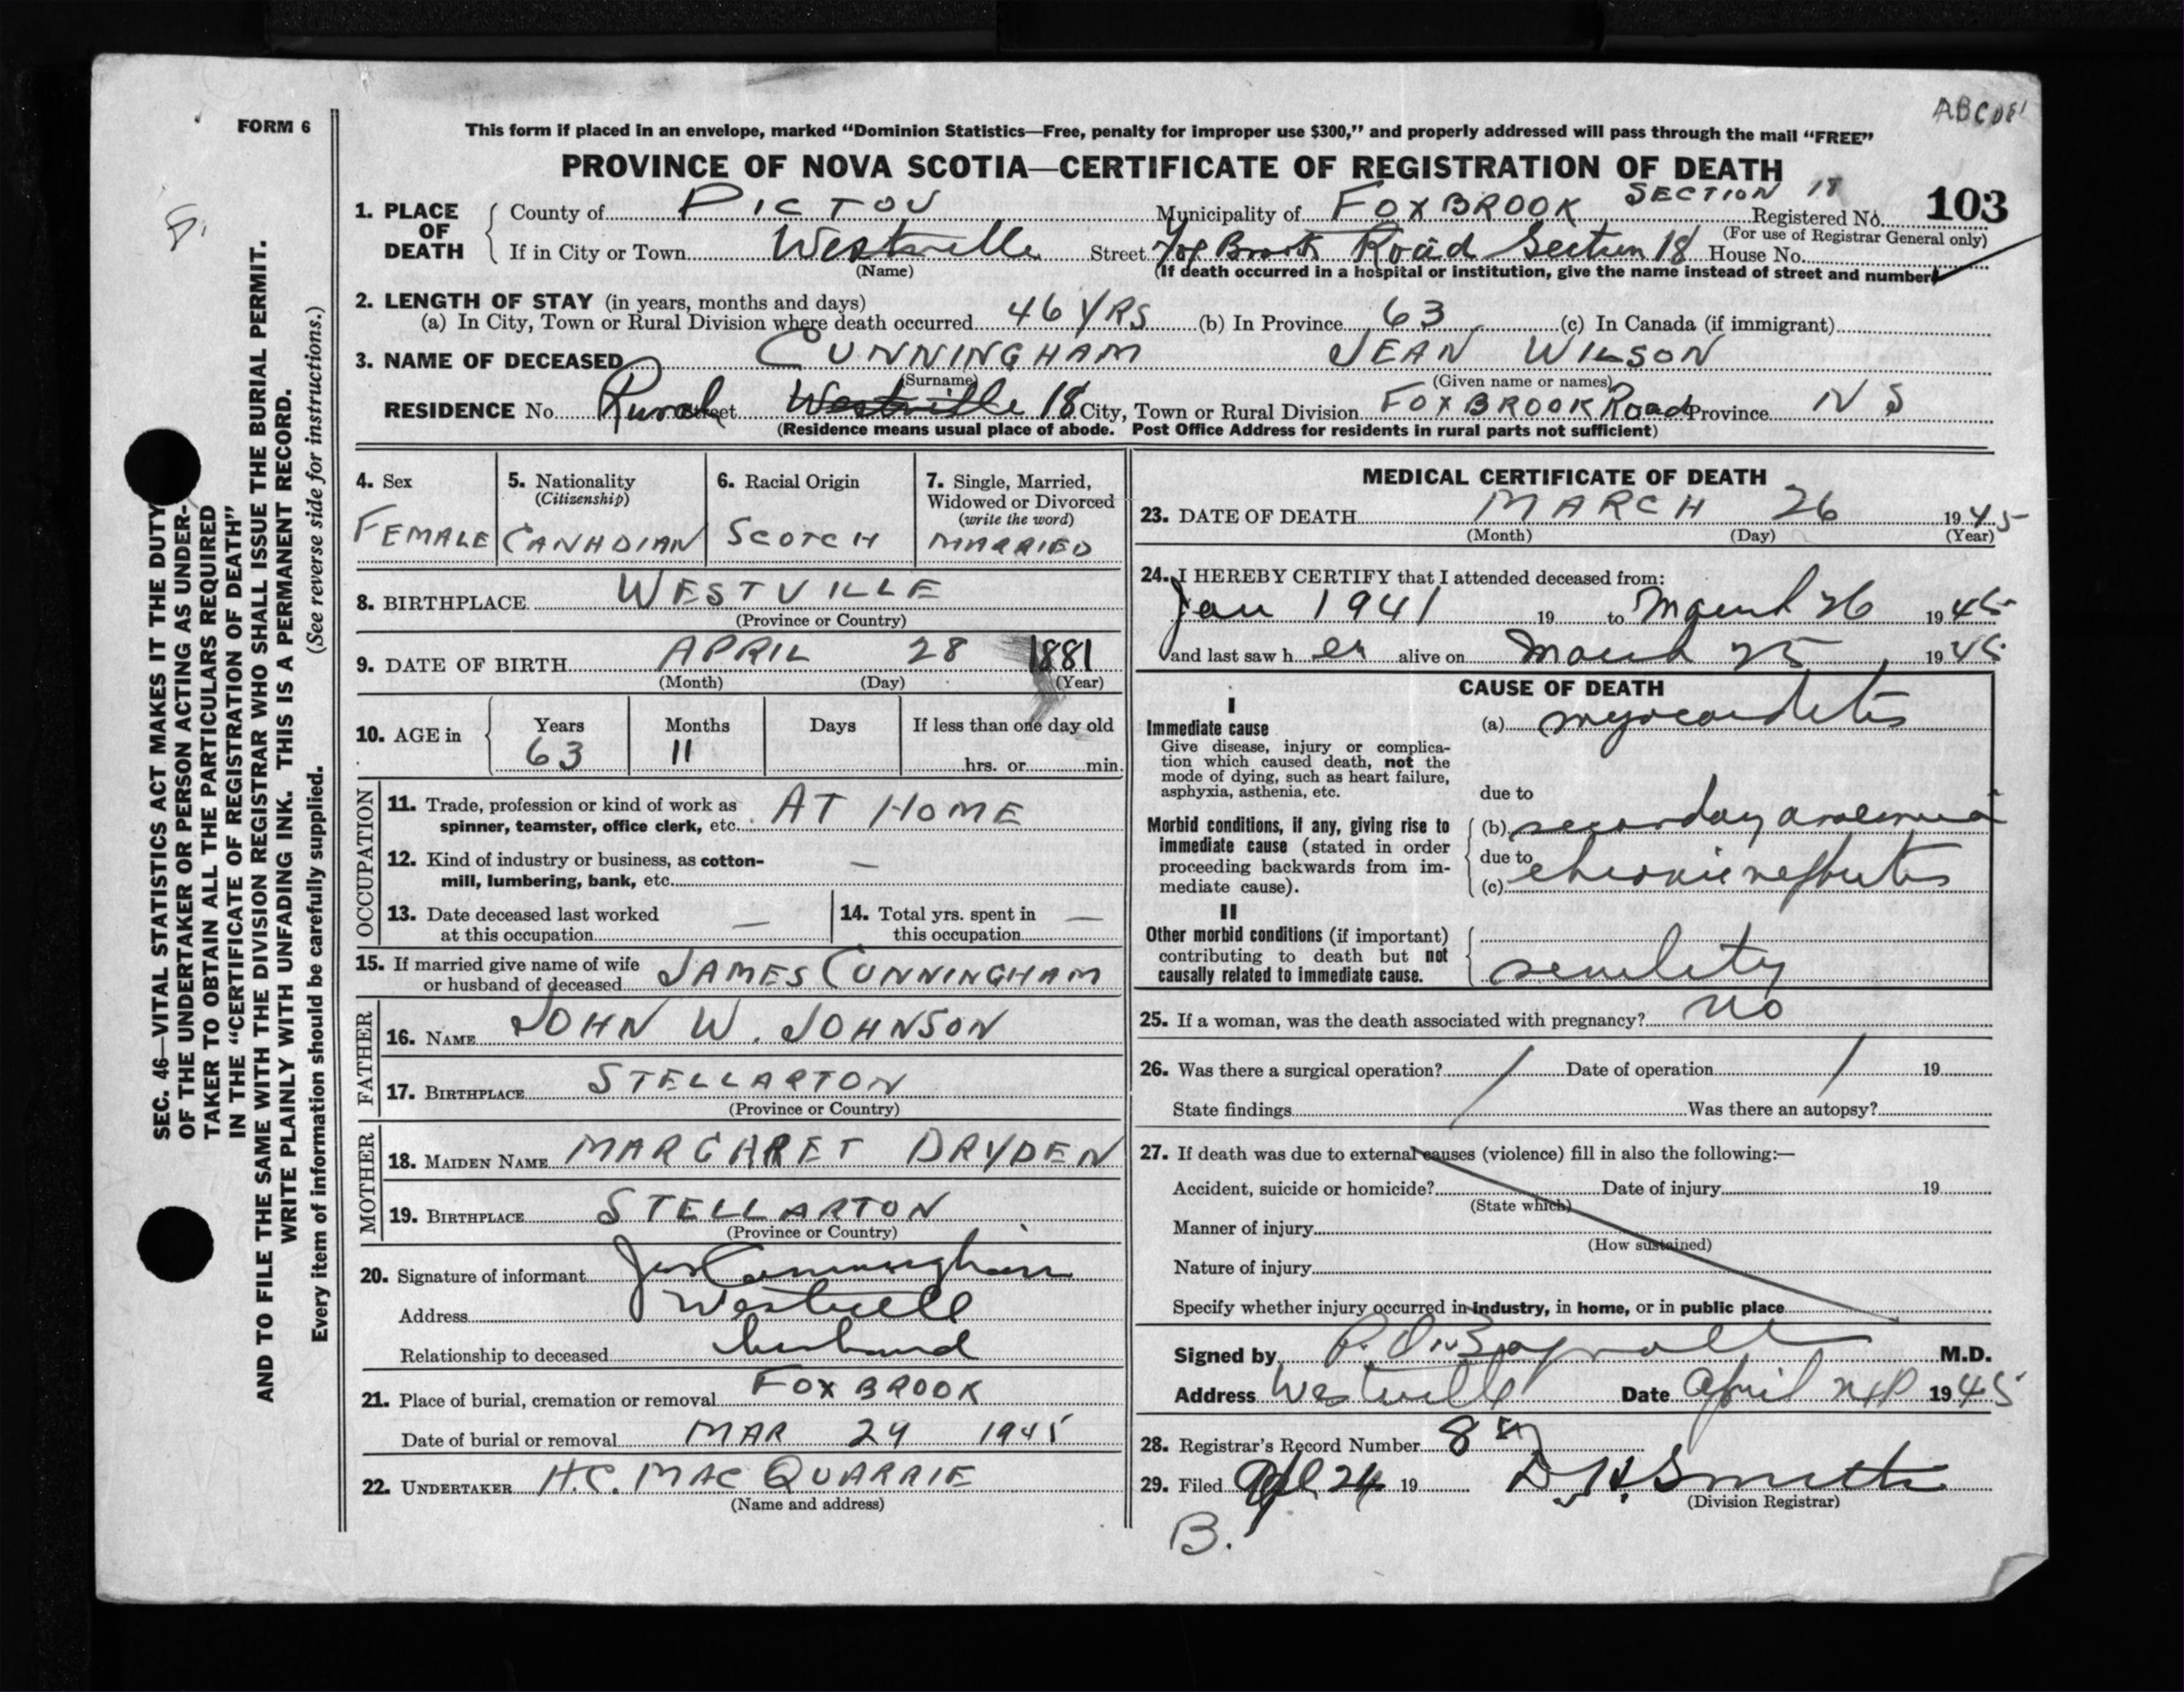 ABCDE
FORM 6
This form if placed in an envelope, marked “Dominion Statistics—Free, penalty for improper use $300,” and properly addressed will pass through the mail “FREE”
PROVINCE OF NOVA SCOTIA—CERTIFICATE OF REGISTRATION OF DEATH
SEC. 46—VITAL STATISTICS ACT MAKES IT THE DUTY
OF THE UNDERTAKER OR PERSON ACTING AS UNDER-
TAKER TO OBTAIN ALL THE PARTICULARS REQUIRED
IN THE “CERTIFICATE OF REGISTRATION OF DEATH”
AND TO FILE THE SAME WITH THE DIVISION REGISTRAR WHO SHALL ISSUE THE BURIAL PERMIT.
WRITE PLAINLY WITH UNFADING INK. THIS IS A PERMANENT RECORD.
Every item of information should be carefully supplied. (See reverse side for instructions.)
1. PLACE OF DEATH
County of PICTOU Municipality of FOXBROOK SECTION 18 Registered No. 103
(For use of Registrar General only)
If in City or Town Westville Street Fox Brook Road Section 18 House No.
(Name) (If death occurred in a hospital or institution, give the name instead of street and number)
2. LENGTH OF STAY (in years, months and days)
(a) In City, Town or Rural Division where death occurred 46 YRS (b) In Province 63 (c) In Canada (if immigrant)
3. NAME OF DECEASED CUNNINGHAM JEAN WILSON
(Surname) (Given name or names)
RESIDENCE No. Rural Street Westville 18 City, Town or Rural Division FOXBROOK Road Province N S
(Residence means usual place of abode. Post Office Address for residents in rural parts not sufficient)
4. Sex
FEMALE
5. Nationality
(Citizenship)
CANADIAN
6. Racial Origin
SCOTCH
7. Single, Married,
Widowed or Divorced
(write the word)
MARRIED
8. BIRTHPLACE WESTVILLE
(Province or Country)
9. DATE OF BIRTH APRIL 28 1881
(Month) (Day) (Year)
10. AGE in Years Months Days If less than one day old
63 11 hrs. or min.
OCCUPATION
11. Trade, profession or kind of work as
spinner, teamster, office clerk, etc. AT HOME
12. Kind of industry or business, as cotton-
mill, lumbering, bank, etc. —
13. Date deceased last worked
at this occupation —
14. Total yrs. spent in
this occupation —
15. If married give name of wife
or husband of deceased JAMES CUNNINGHAM
FATHER
16. NAME JOHN W. JOHNSON
17. BIRTHPLACE STELLARTON
(Province or Country)
MOTHER
18. MAIDEN NAME MARGARET DRYDEN
19. BIRTHPLACE STELLARTON
(Province or Country)
20. Signature of informant Jas Cunningham
Address Westville
Relationship to deceased husband
21. Place of burial, cremation or removal FOXBROOK
Date of burial or removal MAR 29 1945
22. UNDERTAKER H.C. MACQUARRIE
(Name and address)
MEDICAL CERTIFICATE OF DEATH
23. DATE OF DEATH MARCH 26 1945
(Month) (Day) (Year)
24. I HEREBY CERTIFY that I attended deceased from:
Jan 1941 19 to March 26 1945
and last saw her alive on March 25, 1945
CAUSE OF DEATH
I
Immediate cause
Give disease, injury or complica-
tion which caused death, not the
mode of dying, such as heart failure,
asphyxia, asthenia, etc.
(a) myocarditis
due to
Morbid conditions, if any, giving rise to
immediate cause (stated in order
proceeding backwards from im-
mediate cause).
(b) secondary anaemia
due to
(c) chronic nephritis
II
Other morbid conditions (if important)
contributing to death but not
causally related to immediate cause.
senility
25. If a woman, was the death associated with pregnancy? no
26. Was there a surgical operation? / Date of operation / 19
State findings Was there an autopsy?
27. If death was due to external causes (violence) fill in also the following:—
Accident, suicide or homicide? Date of injury 19
(State which)
Manner of injury
(How sustained)
Nature of injury
Specify whether injury occurred in industry, in home, or in public place
Signed by M.D.
Address Westville Date April 1945
28. Registrar's Record Number
29. Filed 24 19 D. H. Smith
(Division Registrar)
B.